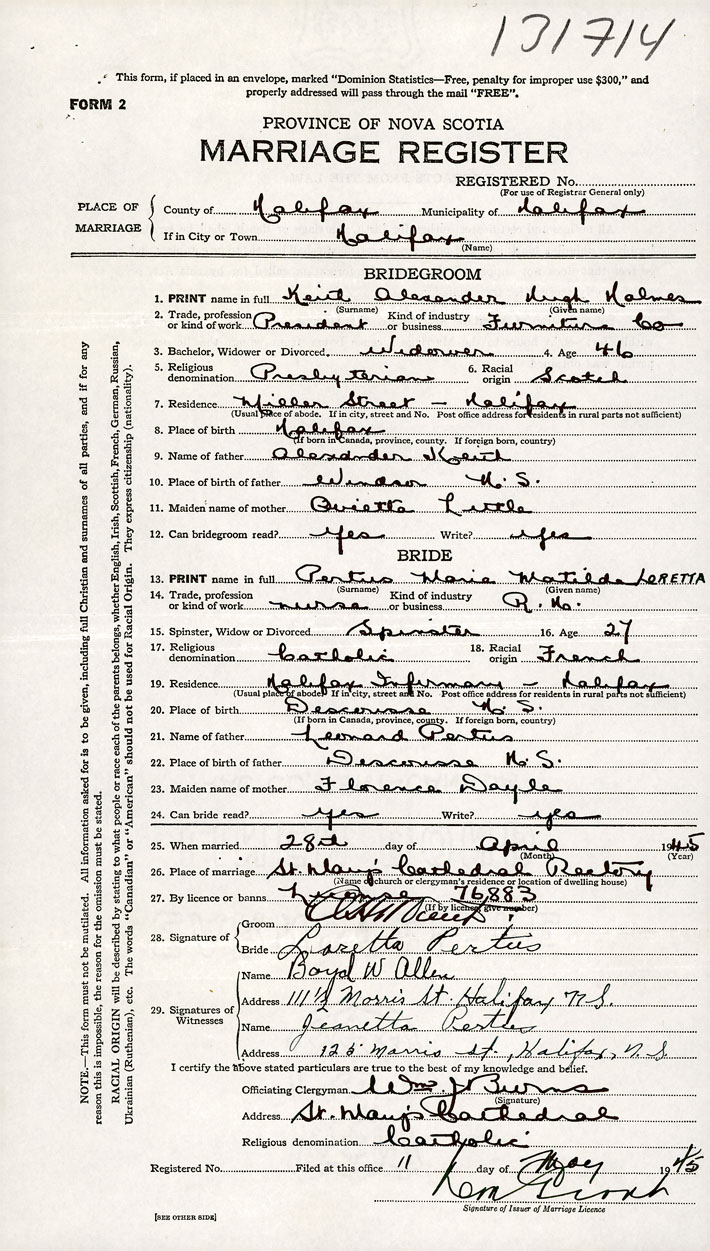 131714
This form, if placed in an envelope, marked "Dominion Statistics—Free, penalty for improper use $300," and
properly addressed will pass through the mail "FREE".
FORM 2
PROVINCE OF NOVA SCOTIA
MARRIAGE REGISTER
REGISTERED No.
(For use of Registrar General only)
PLACE OF MARRIAGE
County of Halifax Municipality of Halifax
If in City or Town Halifax
(Name)
BRIDEGROOM
1. PRINT name in full Keith Alexander Hugh Holmes
(Surname) (Given name)
2. Trade, profession or kind of work President Kind of industry or business Furniture Co
3. Bachelor, Widower or Divorced. Widower 4. Age 46
5. Religious denomination Presbyterian 6. Racial origin Scotch
7. Residence Miller Street - Halifax
(Usual place of abode. If in city, street and No. Post office address for residents in rural parts not sufficient)
8. Place of birth Halifax
(If born in Canada, province, county. If foreign born, country)
9. Name of father Alexander Keith
10. Place of birth of father Windsor N.S.
11. Maiden name of mother Little
12. Can bridegroom read? yes Write? yes
BRIDE
13. PRINT name in full Pertus Marie Matilda LORETTA
(Surname) (Given name)
14. Trade, profession or kind of work nurse Kind of industry or business R.N.
15. Spinster, Widow or Divorced Spinster 16. Age 27
17. Religious denomination Catholic 18. Racial origin French
19. Residence Halifax Infirmary - Halifax
(Usual place of abode. If in city, street and No. Post office address for residents in rural parts not sufficient)
20. Place of birth Descousse N.S.
(If born in Canada, province, county. If foreign born, country)
21. Name of father Leonard Pertus
22. Place of birth of father Descousse N.S.
23. Maiden name of mother Florence Doyle
24. Can bride read? yes Write? yes
25. When married 28th day of April 1945
(Month) (Year)
26. Place of marriage St. Mary's Cathedral Rectory
(Name of church or clergyman's residence or location of dwelling house)
27. By licence or banns License 76883
(If by licence, give number)
28. Signature of
Groom
Bride Loretta Pertus
29. Signatures of Witnesses
Name Boyd W Allen
Address 111½ Morris St. Halifax N.S.
Name Jeanetta Pertus
Address 125 Morris st., Halifax, N.S.
I certify the above stated particulars are true to the best of my knowledge and belief.
Officiating Clergyman Wm. J Burns
(Signature)
Address St. Mary's Cathedral
Religious denomination Catholic
Registered No. Filed at this office 11 day of May 1945
Signature of Issuer of Marriage Licence
[SEE OTHER SIDE]
NOTE.—This form must not be mutilated. All information asked for is to be given, including full Christian and surnames of all parties, and if for any
reason this is impossible, the reason for the omission must be stated.
RACIAL ORIGIN will be described by stating to what people or race each of the parents belongs, whether English, Irish, Scottish, French, German, Russian,
Ukrainian (Ruthenian), etc. The words "Canadian" or "American" should not be used for Racial Origin. They express citizenship (nationality).